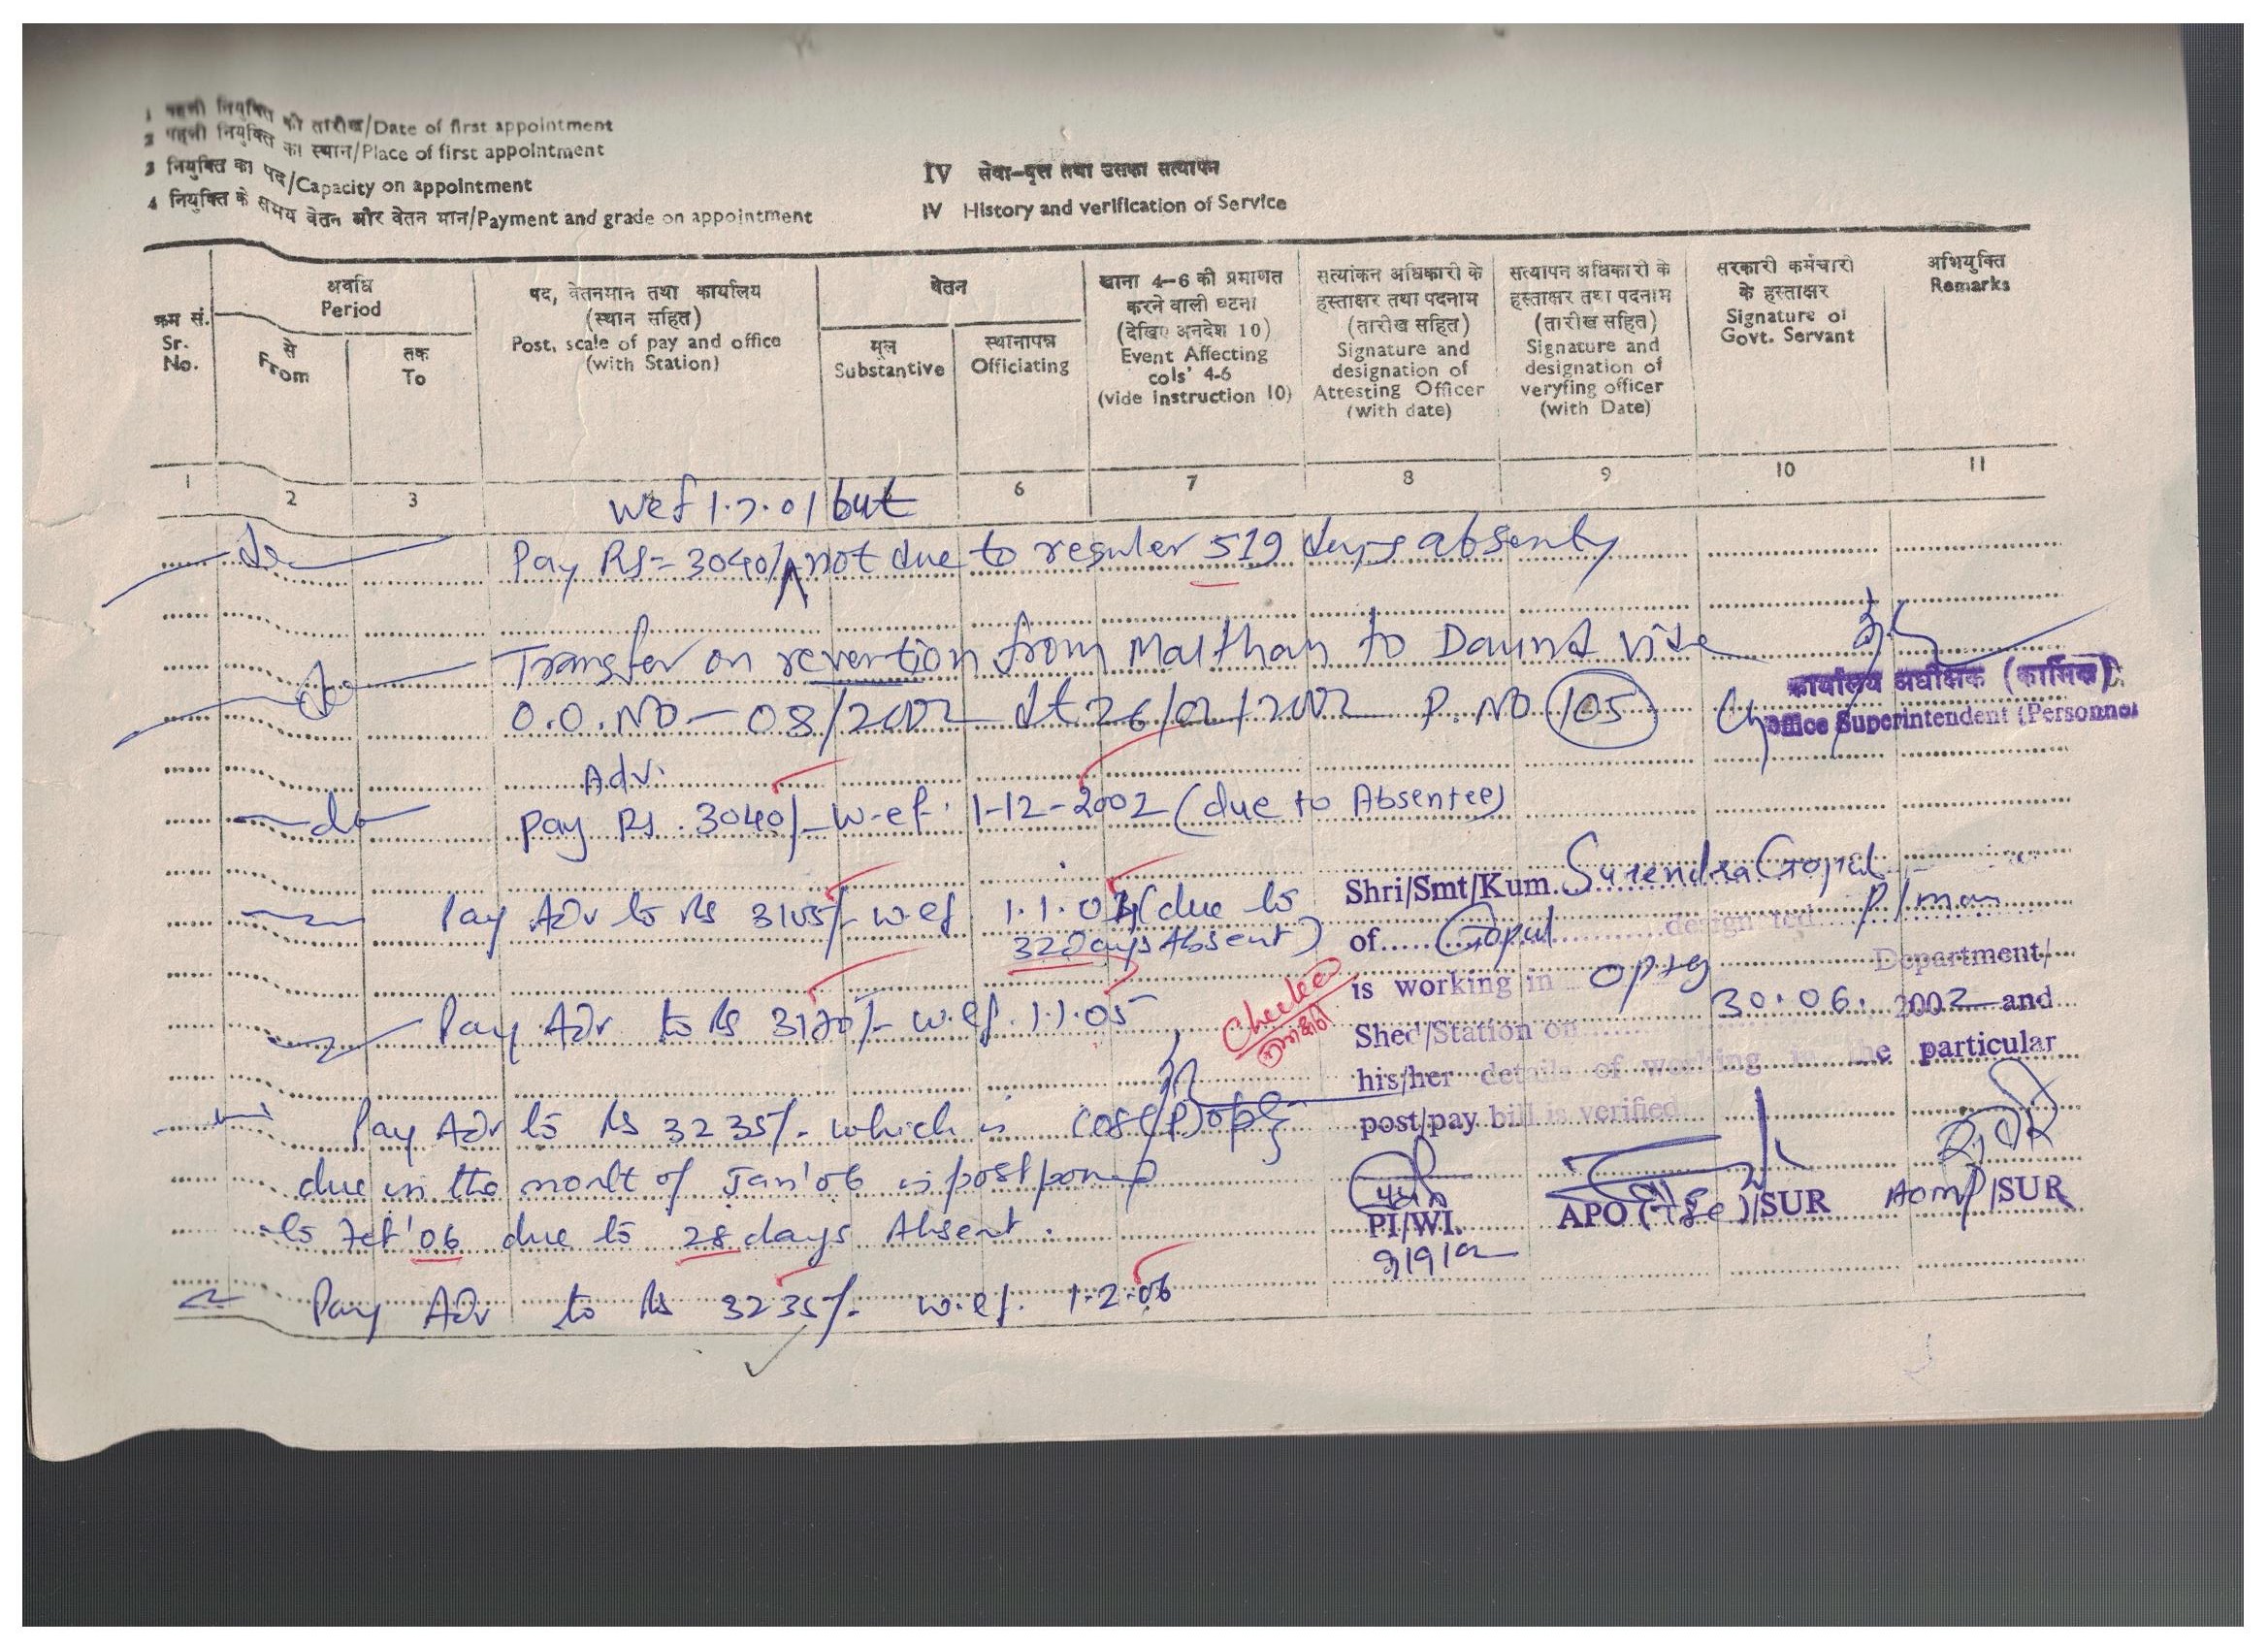 1 पहली नियुक्ति की तारीख/Date of first appointment
2 पहली नियुक्ति का स्थान/Place of first appointment
3 नियुक्ति का पद/Capacity on appointment
4 नियुक्ति के समय वेतन और वेतन मान/Payment and grade on appointment
IV सेवा-वृत्त तथा उसका सत्यापन
IV History and verification of Service
क्रम सं. Sr. No.
अवधि Period
से From
तक To
पद, वेतनमान तथा कार्यालय (स्थान सहित) Post, scale of pay and office (with Station)
वेतन
मूल Substantive
स्थानापन्न Officiating
खाना 4-6 की प्रमाणत करने वाली घटना (देखिए अनदेश 10) Event Affecting cols' 4-6 (vide instruction 10)
सत्यांकन अधिकारी के हस्ताक्षर तथा पदनाम (तारीख सहित) Signature and designation of Attesting Officer (with date)
सत्यापन अधिकारी के हस्ताक्षर तथा पदनाम (तारीख सहित) Signature and designation of veryfing officer (with Date)
सरकारी कर्मचारी के हस्ताक्षर Signature of Govt. Servant
अभियुक्ति Remarks
1 2 3 6 7 8 9 10 11
wef 1.7.01 but
do Pay Rs= 3040/- not due to reguler 519 days absenty
do Transfer on revertion from Malthan to Daund vide
O.O. NO - 08/2002 dt 26/02/2002 P. NO 105
कार्यालय अधीक्षक (कार्मिक)
Office Superintendent (Personnel
Adv.
do pay Rs. 3040/- w.ef. 1-12-2002 (due to Absentee)
Pay Adv to Rs 3105/- w.ef 1.1.04 (due to
32 Days Absent)
Pay Adv to Rs 3170/- w.ef. 1.1.05
Checked
Pay Adv to Rs 3235/- which is
due in the month of Jan'06 is postponed
to Feb'06 due to 28 days Absent.
Pay Adv to Rs 3235/- w.ef. 1.2.06
Shri/Smt/Kum. Surendra Gopal
of Gopal designated P/man
is working in optg Department/
Shed/Station on 30.06.2002 and
his/her details of working in the particular
post/pay bill is verified
PI/WI. APO /SUR AOM/SUR
9/9/02